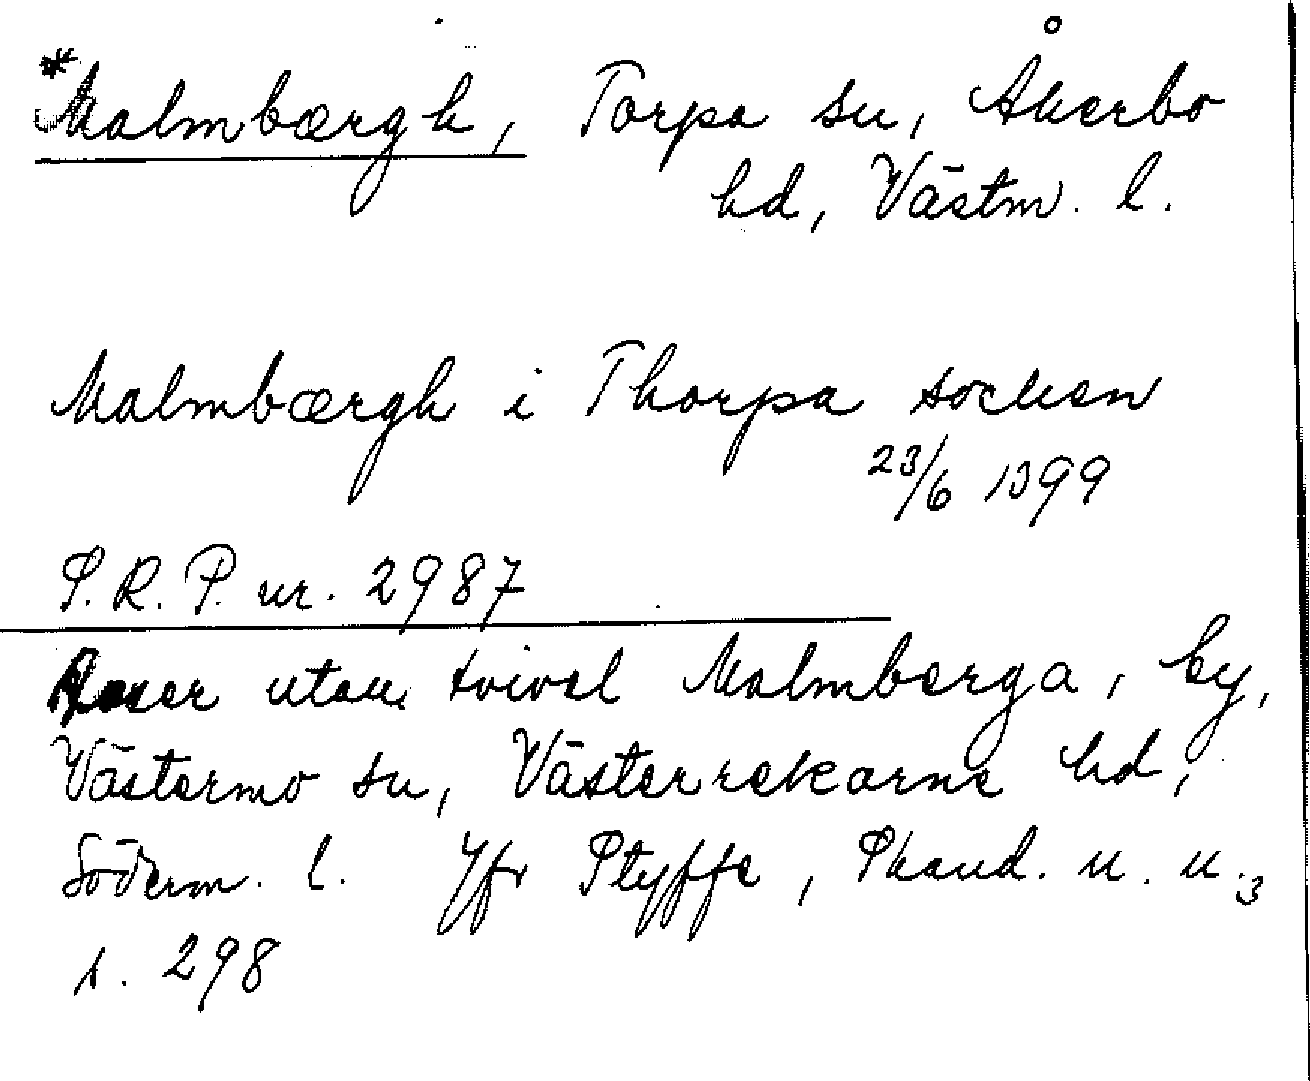 *Malmbærgh, Torpa sn, Åkerbo
hd, Västm. l.
Malmbærgh i Thorpa socken
23/6 1399
S.R.P. nr. 2987
utan tvivel Malmberga, by,
Västermo sn, Västerrekarne hd,
Söderm. l. Jfr Styffe, Skand. u. u.3
s. 298